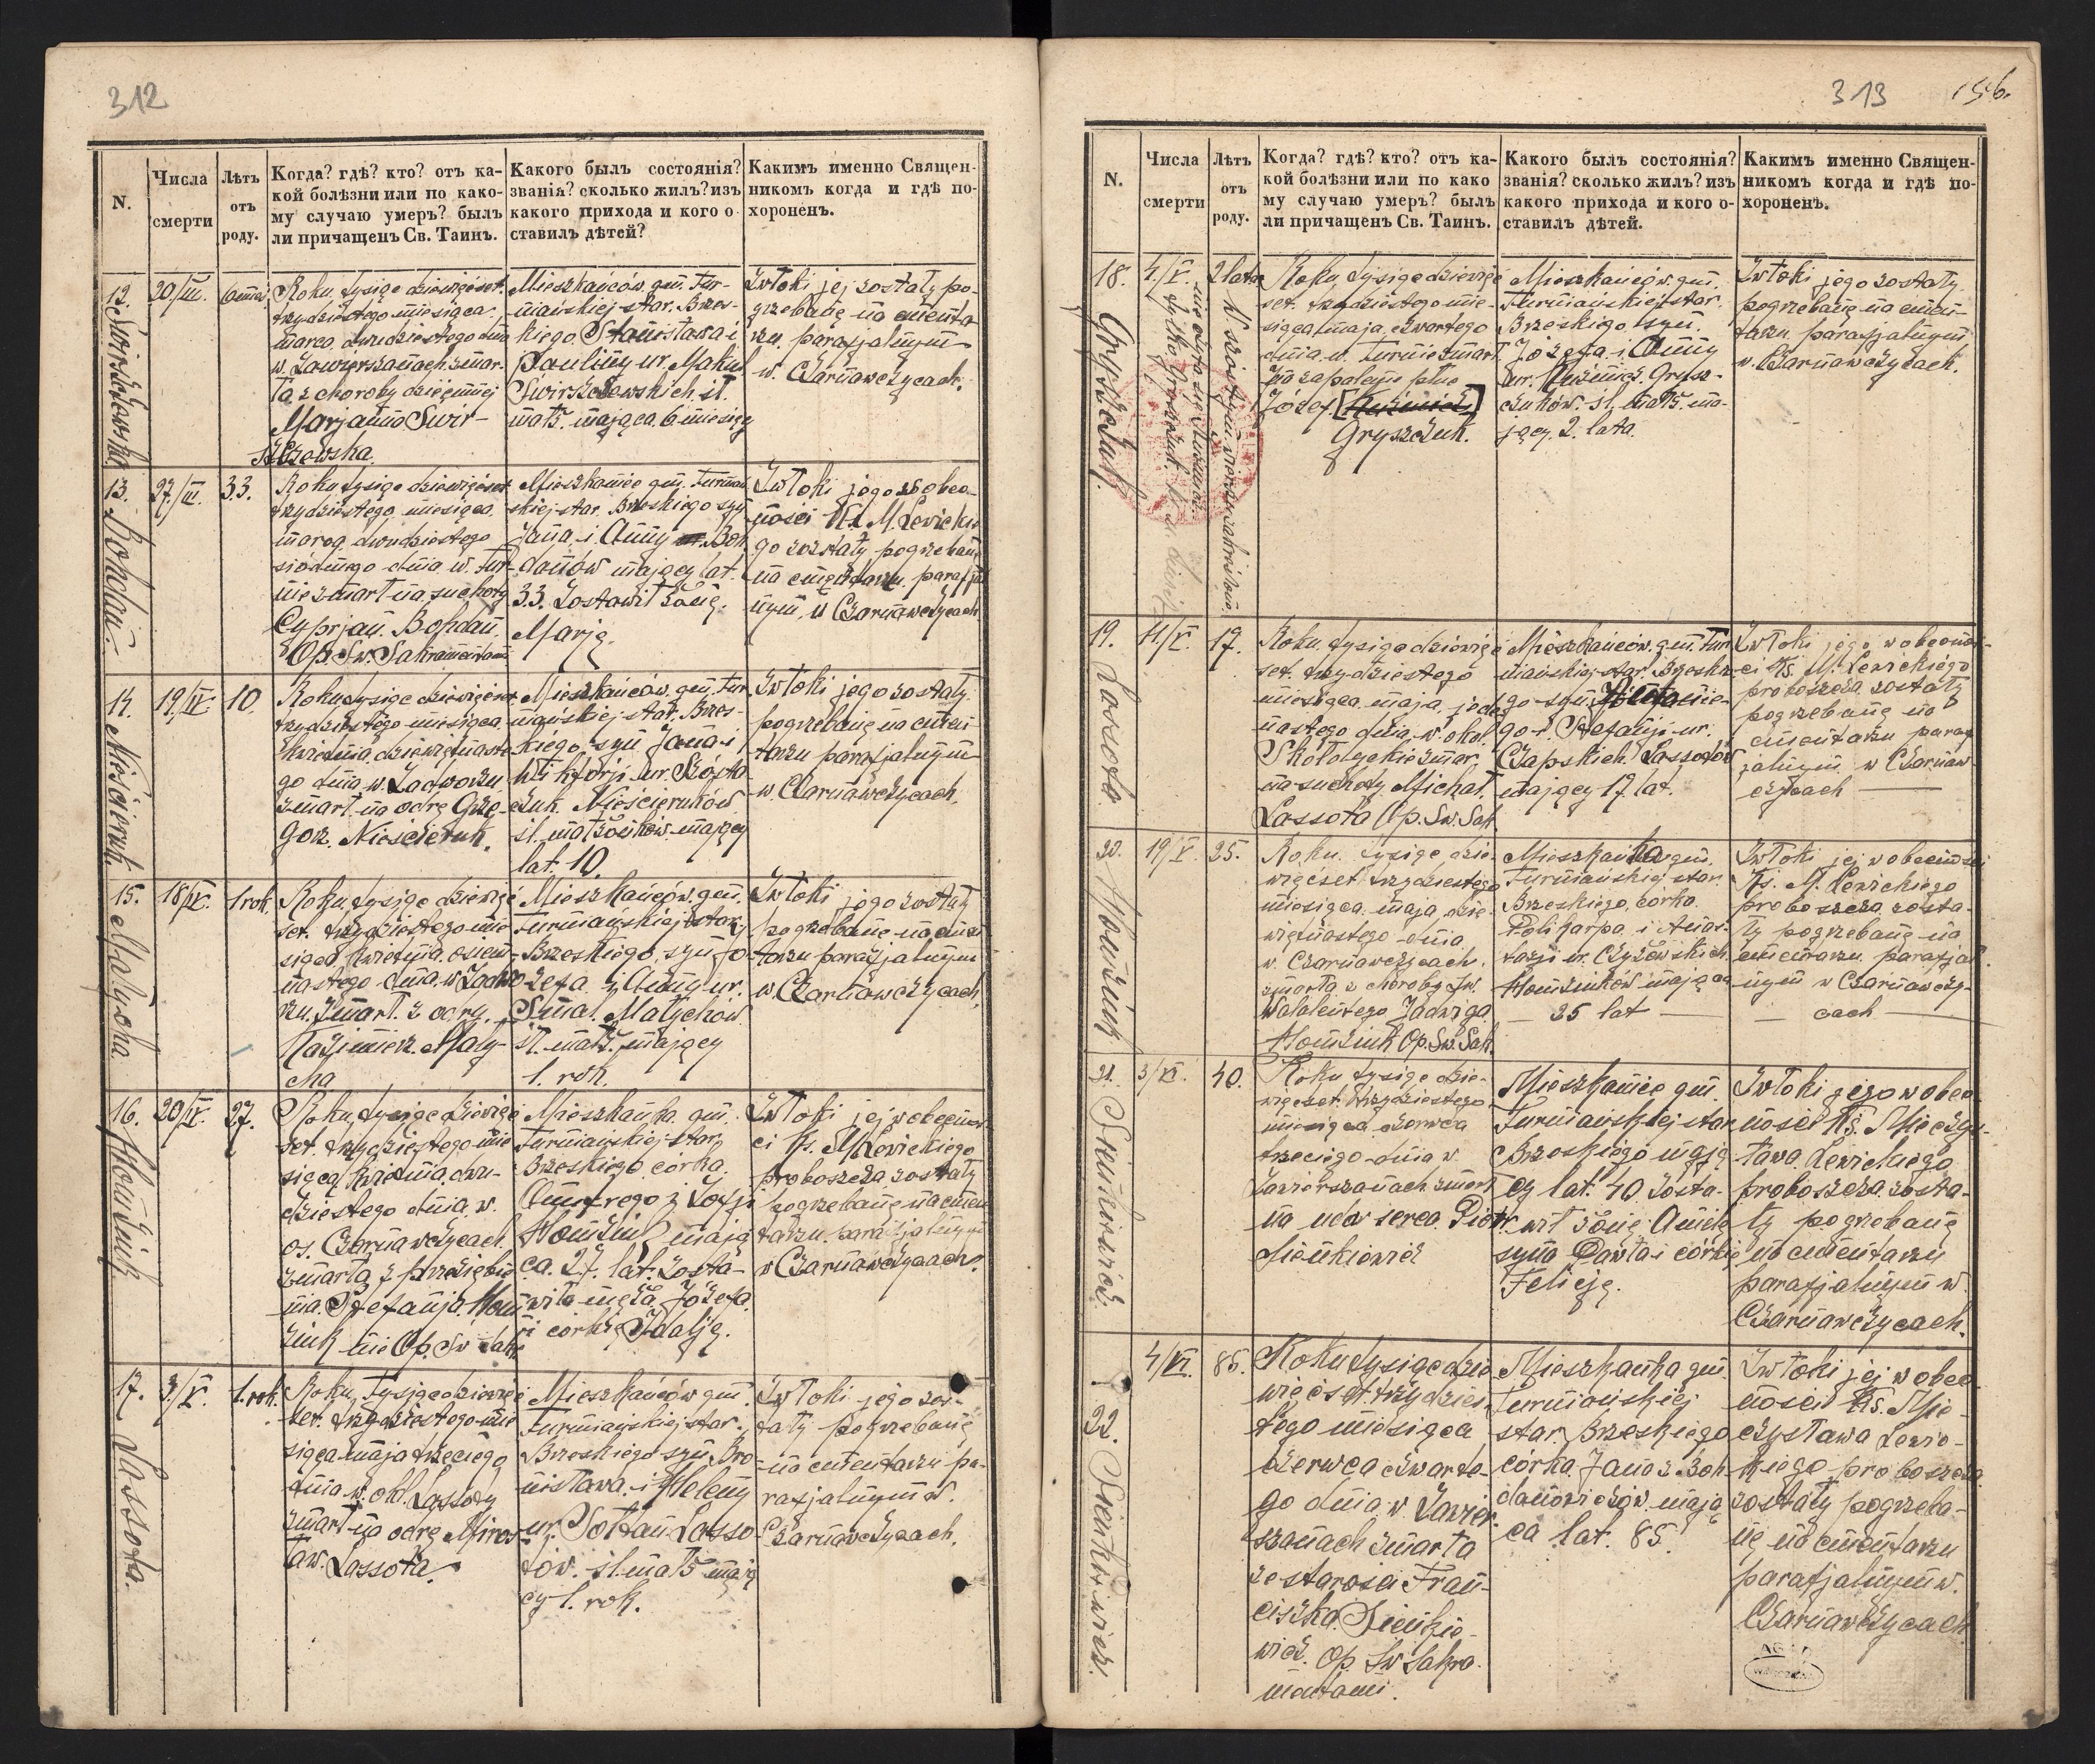 312
N.
Числа
смерти
Лѣтъ
отъ
роду.
Когда? гдѣ? кто? отъ ка-
кой болѣзни или по како-
му случаю умеръ? былъ
ли причащенъ Св. Таинъ.
Какого былъ состоянія?
званія? сколько жилъ? изъ
какого прихода и кого о-
ставилъ дѣтей?
Какимъ именно Священ-
никомъ когда и гдѣ по-
хороненъ.
12.
20/III.
Roku tysiąc dziewięćset
trzydziestego miesiąca
marca dwudziestego dnia
w Zawierszanach zmar-
ła z choroby dziecinnej
Marjanna Swir-
Mieszkańców gm. Tur-
niańskiej star. Brzes-
kiego Stanisława i
Pauliny ur. Makul
mająca 6 miesięcy
Zwłoki jej zostały po-
grzebane na cmenta
rzu parafjalnym
w Czarnawczycach.
13. Bohdan.
27/III.
33.
Roku tysiąc dziewięćset
trzydziestego miesiąca
marca dwudziestego
siódmego dnia w Tur-
nie zmarł na suchoty
Cyprjan Bohdan.
Op. Św. Sakramentami
Mieszkaniec gm. Turniań
skiej star. Brzeskiego syn
Jana i Anny Boh
danów mający lat
33. Zostawił żonę
Marję.
Zwłoki jego w obec-
ności Ks. M. Lewickie
go zostały pogrzebane
na cmentarzu parafjal
nym w Czarnawczycach
14. Nieścieruk.
19/IV.
10.
Roku tysiąc dziewięćset
trzydziestego miesiąca
kwietnia dziewiętnaste
go dnia w Zadworzu
zmarł na odrę Grze-
gorz Nieścieruk.
Mieszkańców gm. Tur
niańskiej star. Brzes-
kiego syn Jana i
Wiktorji ur.
czuk Nieścieruków
śl. małżonków mający
lat 10.
Zwłoki jego zostały
pogrzebane na cmen-
tarzu parafjalnym
w Czarnawczycach.
15. Małycha.
18/IV.
1 rok.
Roku tysiąc dziewięć
set trzydziestego mie
siąca kwietnia osiem-
nastego dnia w Zadwo
rzu zmarł z odry
Kazimierz Mały-
cha
Mieszkańców gm.
Turniańskiej star.
Brzeskiego, syn Jó-
zefa i Anny ur.
Małychów
śl. małż. mający
1. rok.
Zwłoki jego zostały
pogrzebane na cmen
tarzu parafjalnym
w Czarnawczycach.
16. Homziuk
20/IV.
27.
Roku tysiąc dziewięć
set trzydziestego mie
siąca kwietnia dwu-
dziestego dnia w
os. Czarnawczycach
zmarła z przeziębie
nia Stefanja Hom
ziuk nie Op. Św. Sakr.
Mieszkanka gm.
Turniańskiej star.
Brzeskiego córka
Onufrego i Zofji
Homziuk mają
ca 27. lat. Zosta-
wiła męża Józefa
i córkę Idalję.
Zwłoki jej w obecnoś
ci Ks. M. Lewickiego
proboszcza zostały
pogrzebane na cmen
tarzu parafjalnym
w Czarnawczycach.
17. Lassota.
3/V.
1. rok.
Roku tysiąc dziewięć
set trzydziestego mie
siąca maja trzeciego
dnia w okl. Lassoty
zmarł na odrę Miros-
ław Lassota.
Mieszkańców gm.
Turniańskiej star.
Brzeskiego syn Bro-
nisława i Heleny
ur. Sołtan Lasso-
tów śl. małż. mają
cy 1. rok.
Zwłoki jego zos-
tały pogrzebane
na cmentarzu pa-
rafjalnym w
Czarnawczycach.
313
156.
N.
Числа
смерти
Лѣтъ
отъ
роду.
Когда? гдѣ? кто? отъ ка-
кой болѣзни или по како
му случаю умеръ? былъ
ли причащенъ Св. Таинъ.
Какого былъ состоянія?
званія? сколько жилъ? изъ
какого прихода и кого о-
ставилъ дѣтей.
Какимъ именно Священ-
никомъ когда и гдѣ по-
хороненъ.
18. Gryszczuk.
4/V.
2 lata
Roku tysiąc dziewięć
set trzydziestego mie-
siąca maja czwartego
dnia w Turnie zmarł
na zapalenie płuc
Józef
Gryszczuk.
Mieszkańców gm.
Turniańskiej star.
Brzeskiego syn
Józefa i Anny
ur. Kuźmicz Grysz-
czuków śl. małż. ma-
jący 2. lata.
Zwłoki jego zostały
pogrzebane na cmen-
tarzu parafjalnym
w Czarnawczycach.
19. Lassota
11/V.
17.
Roku tysiąc dziewięć
set trzydziestego
miesiąca maja jede
nastego dnia w okol.
zmar.
na suchoty Michał
Lassota Op. Św. Sak.
Mieszkańców gm. Tur
niańskiej star. Brzeskie
go syn
go i Stefanji ur.
Czapskich Lassotów
mający 17 lat.
Zwłoki jego w obecnoś-
ci Ks. M. Lewickiego
proboszcza zostały
pogrzebane na
cmentarzu paraf
jalnym w Czarnaw
czycach
20. Homziuk
19/V.
25.
Roku tysiąc dzie-
więćset trzydziestego
miesiąca maja dzie-
więtnastego dnia
w Czarnawczycach
zmarła z choroby Św.
Walentego Jadwiga
Homziuk Op. Św. Sak.
Mieszkanka gm.
Turniańskiej star.
Brzeskiego, córka
Polikarpa i Anas-
tazji ur. Czyżewskich
Homziuków mająca
25 lat
Zwłoki jej w obecności
Ks. M. Lewickiego
proboszcza zosta-
ły pogrzebane na
cmentarzu parafjal
nym w Czarnawczy-
cach
21. Sienkiewicz.
3/VI.
40.
Roku tysiąc dzie-
więćset trzydziestego
miesiąca czerwca
trzeciego dnia w
Zawierszanach zmarł
na udar serca Piotr
Sienkiewicz
Mieszkaniec gm.
Turniańskiej star
Brzeskiego mają
cy lat 40 zosta-
wił żonę Anielę
syna Pawła i córkę
Felicję.
Zwłoki jego w obec-
ności Ks. Mieczys-
ława Lewickiego
proboszcza zosta-
ły pogrzebane
na cmentarzu
parafjalnym w
Czarnawczycach.
22. Sienkiewicz.
4/VI.
85.
Roku tysiąc dzie
więćset trzydzies-
tego miesiąca
czerwca czwarte-
go dnia w Zawier-
szanach zmarła
ze starości Fran-
ciszka Sienkie-
wicz. Op. Św Sakra-
mentami.
Mieszkanka gm.
Turniańskiej
star. Brzeskiego
córka Jana z Boh
danowiczów mają
ca lat 85.
Zwłoki jej w obec
ności Ks. Mie-
czysława Lewic-
kiego proboszcza
zostały pogrzeba-
ne na cmentarzu
parafjalnym w
Czarnawczycach